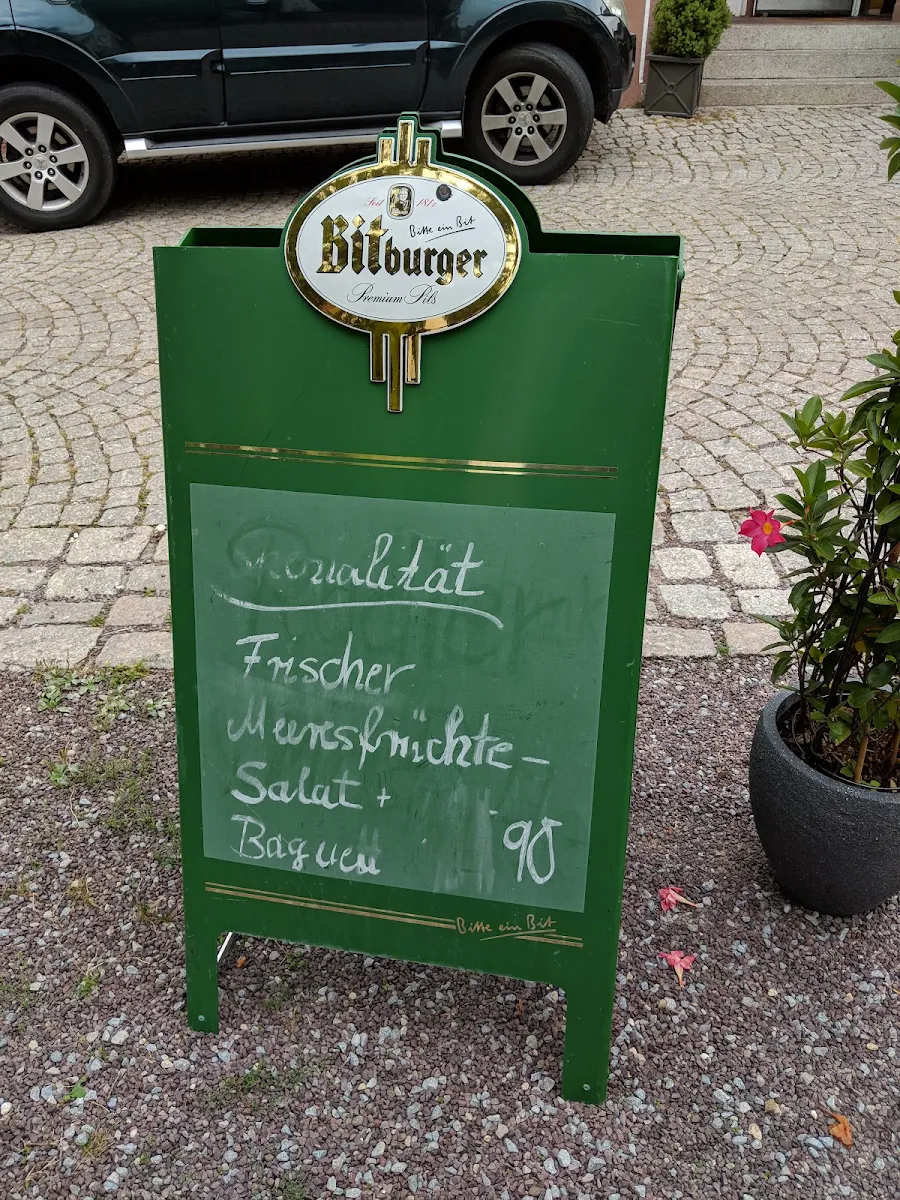 Seit 1817
Bitte ein Bit
Bitburger
Premium Pils
Spezialität
Frischer
Meeresfrüchte-
Salat +
Baguett 90
Bitte ein Bit